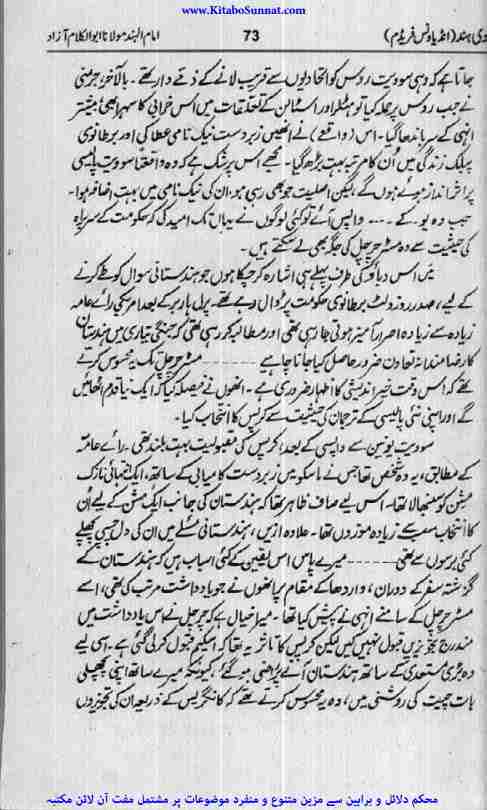 www.KitaboSunnat.com
دی ہند (انڈیا ونس فریڈم) 73 امام الہند مولانا ابوالکلام آزاد
جاتا ہے کہ وہی سوویت روس کو اتحادیوں سے قریب لانے کے ذمے دار تھے۔ بالآخر، جرمنی
نے جب روس پر حملہ کیا تو ہٹلر اور اسٹالن کے تعلقات میں اس خرابی کا سہرا بھی بیشتر
انہی کے سر باندھا گیا۔ اس (واقعے) نے انھیں زبردست نیک نامی عطا کی اور برطانوی
پبلک زندگی میں اُن کا مرتبہ بہت بڑھ گیا۔ مجھے اس پر شک ہے کہ وہ واقعتاً سوویت پالیسی
پر اثر انداز ہوئے ہوں گے لیکن اصلیت جو بھی رہی ہو، ان کی نیک نامی میں بہت اضافہ ہوا۔
جب وہ یو۔ کے ۔۔۔ واپس آئے تو کئی لوگوں نے یہاں تک امید کی کہ حکومت کے سربراہ
کی حیثیت سے وہ مسٹر چرچل کی جگہ بھی لے سکتے ہیں۔
میں اس دباؤ کی طرف پہلے ہی اشارہ کر چکا ہوں جو ہندستانی سوال کو طے کرنے
کے لیے، صدر روز ولٹ برطانوی حکومت پر ڈال رہے تھے۔ پرل ہاربر کے بعد امریکی رائے عامہ
زیادہ سے زیادہ اصرار آمیز ہوتی جا رہی تھی اور مطالبہ کر رہی تھی کہ جنگی تیاری میں ہندستان
کا رضامندانہ تعاون ضرور حاصل کیا جانا چاہیے ۔۔۔۔۔۔ مسٹر چرچل تک یہ محسوس کرتے
تھے کہ اس وقت خیر اندیشی کا اظہار ضروری ہے۔ انھوں نے فیصلہ کیا کہ ایک نیا قدم اٹھائیں
گے اور اپنی نئی پالیسی کے ترجمان کی حیثیت سے کرپس کا انتخاب کیا۔
سوویت یونین سے واپسی کے بعد، کرپس کی مقبولیت بہت بلند تھی۔ رائے عامہ
کے مطابق، یہ وہ شخص تھا جس نے ماسکو میں زبردست کامیابی کے ساتھ، ایک انتہائی نازک
مشن کو سنبھالا تھا۔ اس لیے صاف ظاہر تھا کہ ہندستان کی جانب ایک مشن کے لیے اُن
کا انتخاب سب سے زیادہ موزوں تھا۔ علاوہ ازیں، ہندستانی مسئلے میں ان کی دل چسپی پچھلے
کئی برسوں سے تھی ۔۔۔۔۔۔ میرے پاس اس یقین کے کئی اسباب ہیں کہ ہندستان کے
گزشتہ سفر کے دوران، واردھا کے مقام پر انھوں نے جو یادداشت مرتب کی تھی، اسے
مسٹر چرچل کے سامنے انہی نے پیش کیا تھا۔ میرا خیال ہے کہ چرچل نے اس یادداشت میں
مندرج تجویزیں قبول نہیں کیں لیکن کرپس کا تاثر یہ تھا کہ اسکیم قبول کر لی گئی ہے۔ اسی لیے
وہ بڑی مستعدی کے ساتھ ہندستان آنے پر راضی ہو گئے کیونکہ میرے ساتھ اپنی پچھلی
بات چیت کی روشنی میں، وہ یہ محسوس کرتے تھے کہ کانگریس کے ذریعہ ان کی تجویزوں
محکم دلائل و براہین سے مزین متنوع و منفرد موضوعات پر مشتمل مفت آن لائن مکتبہ